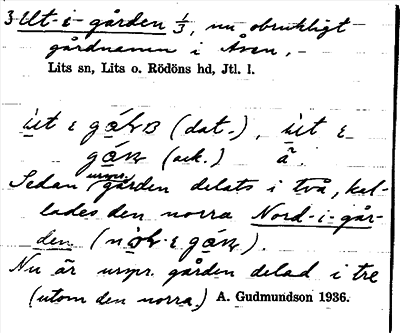 3 Ut-i-gården 1/3, nu obrukligt
gårdnamn i Åsen,-
Lits sn, Lits o. Rödöns hd, Jtl. l.
(dat.),
(ack.)
Sedan urspr. gården delats i två, kal-
lades den norra Nord-i-går-
den
Nu är urspr. gården delad i tre
(utom den norra) A. Gudmundson 1936.